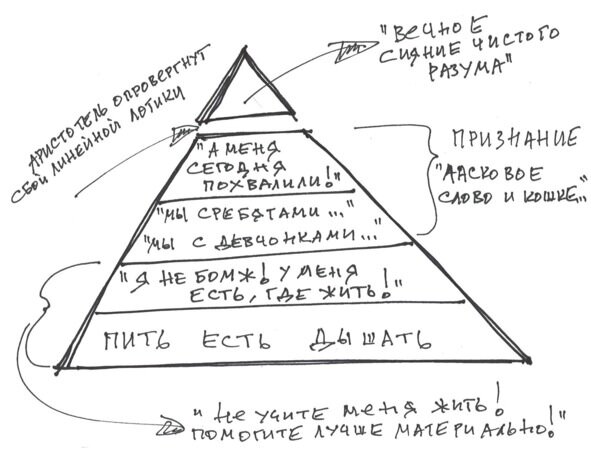 "ВЕЧНОЕ
СИЯНИЕ ЧИСТОГО
РАЗУМА"
АРИСТОТЕЛЬ ОПРОВЕРГНУТ
СБОЙ ЛИНЕЙНОЙ ЛОГИКИ
"А МЕНЯ
СЕГОДНЯ
ПОХВАЛИЛИ!"
ПРИЗНАНИЕ
"ЛАСКОВОЕ
СЛОВО И КОШКЕ..."
"МЫ С РЕБЯТАМИ..."
"МЫ С ДЕВЧОНКАМИ..."
"Я НЕ БОМЖ! У МЕНЯ
ЕСТЬ, ГДЕ ЖИТЬ!"
ПИТЬ ЕСТЬ ДЫШАТЬ
"НЕ УЧИТЕ МЕНЯ ЖИТЬ!
ПОМОГИТЕ ЛУЧШЕ МАТЕРИАЛЬНО!"